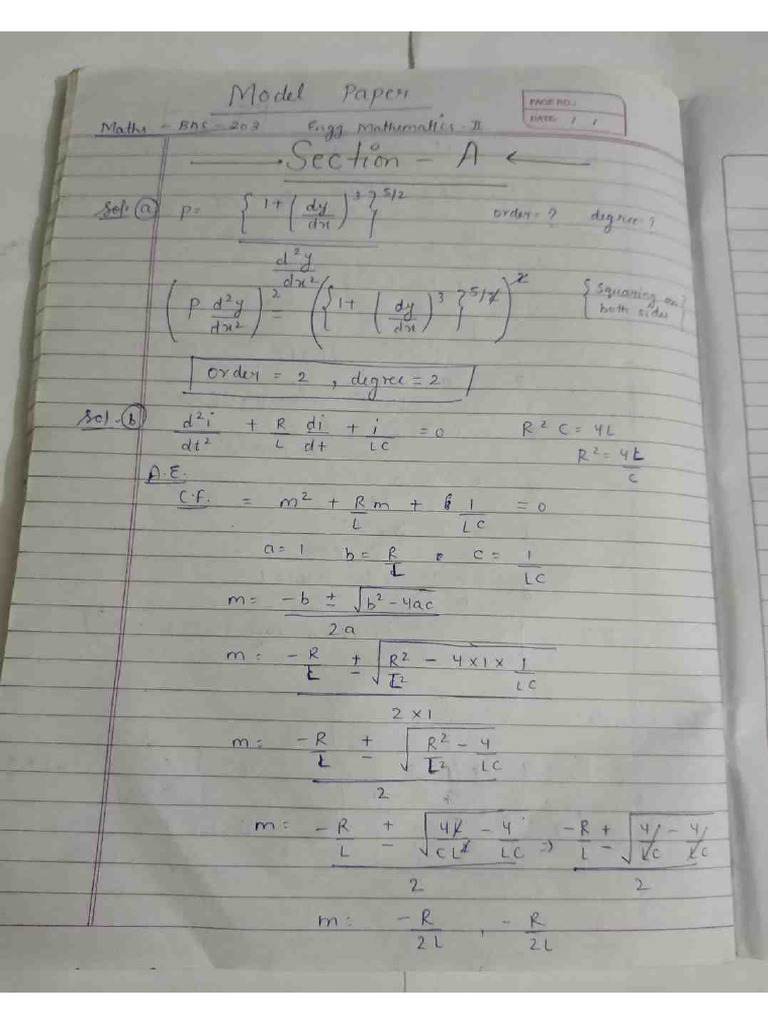 Model Paper
PAGE NO.:
DATE: / /
Maths - BAS - 203 Engg Mathematics - II
Section - A
Sol. (a) P = {1 + (dy/dx)^3}^5/2 / d²y/dx² order = ? degree = ?
(P d²y/dx²)² = ({1 + (dy/dx)^3}^5/2)^2 {Squaring on both sides}
order = 2 , degree = 2
Sol. (b) d²i/dt² + R/L di/dt + i/LC = 0 R²C = 4L
R² = 4L/C
A.E.
C.F. = m² + R/L m + 1/LC = 0
a = 1 b = R/L c = 1/LC
m = -b ± √(b² - 4ac) / 2a
m = -R/L ± √(R²/L² - 4×1×1/LC) / 2×1
m = -R/L ± √(R²/L² - 4/LC) / 2
m = -R/L ± √(4L/CL² - 4/LC) / 2 ⇒ -R/L ± √(4/LC - 4/LC) / 2
m = -R/2L , -R/2L